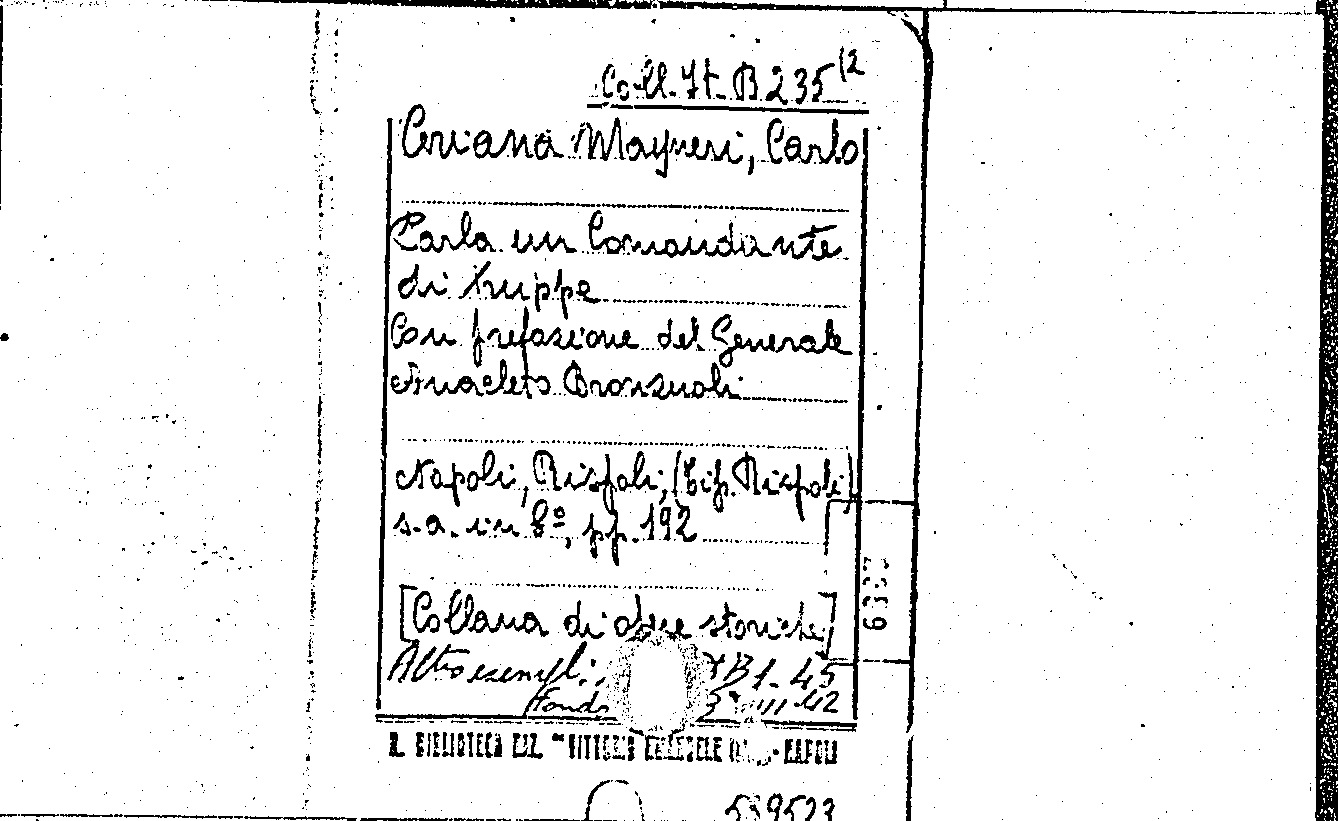 Coll. It. B 235 (2
Ceriana Mayneri, Carlo
Parla un Comandante
di truppe
Con prefazione del Generale
Anacleto Bronzuoli
Napoli, Rispoli, (Tip. Rispoli)
s.a. in 8º, pp. 192
[Collana di opere storiche]
Altro esempl:, B 1-45
Fondo
R. BIBLIOTECA NAZ. "VITTORIO EMANUELE - NAPOLI
589523